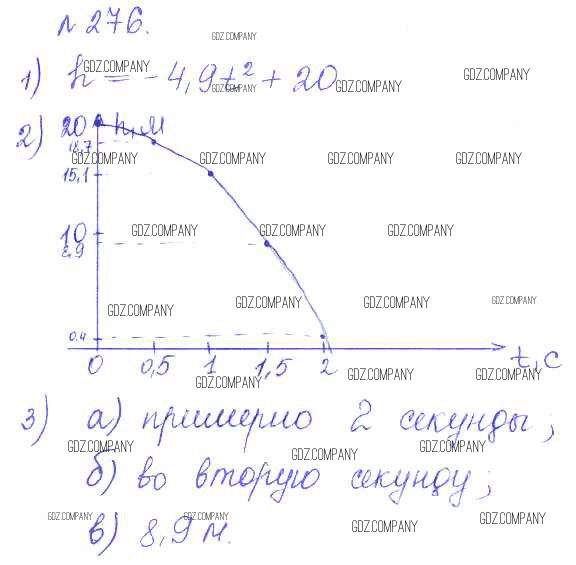 № 276.
GDZ.COMPANY
1) h = -4,9t² + 20
GDZ.COMPANY GDZ.COMPANY GDZ.COMPANY GDZ.COMPANY
2) 20 h, м
18,7
GDZ.COMPANY GDZ.COMPANY GDZ.COMPANY GDZ.COMPANY
15,1
GDZ.COMPANY GDZ.COMPANY GDZ.COMPANY
10
8,9
GDZ.COMPANY GDZ.COMPANY GDZ.COMPANY GDZ.COMPANY
0.4
0 0,5 1 1,5 2 t, с
GDZ.COMPANY GDZ.COMPANY GDZ.COMPANY
3) а) примерно 2 секунды;
GDZ.COMPANY GDZ.COMPANY GDZ.COMPANY
б) во вторую секунду;
GDZ.COMPANY GDZ.COMPANY GDZ.COMPANY GDZ.COMPANY
в) 8,9 м.